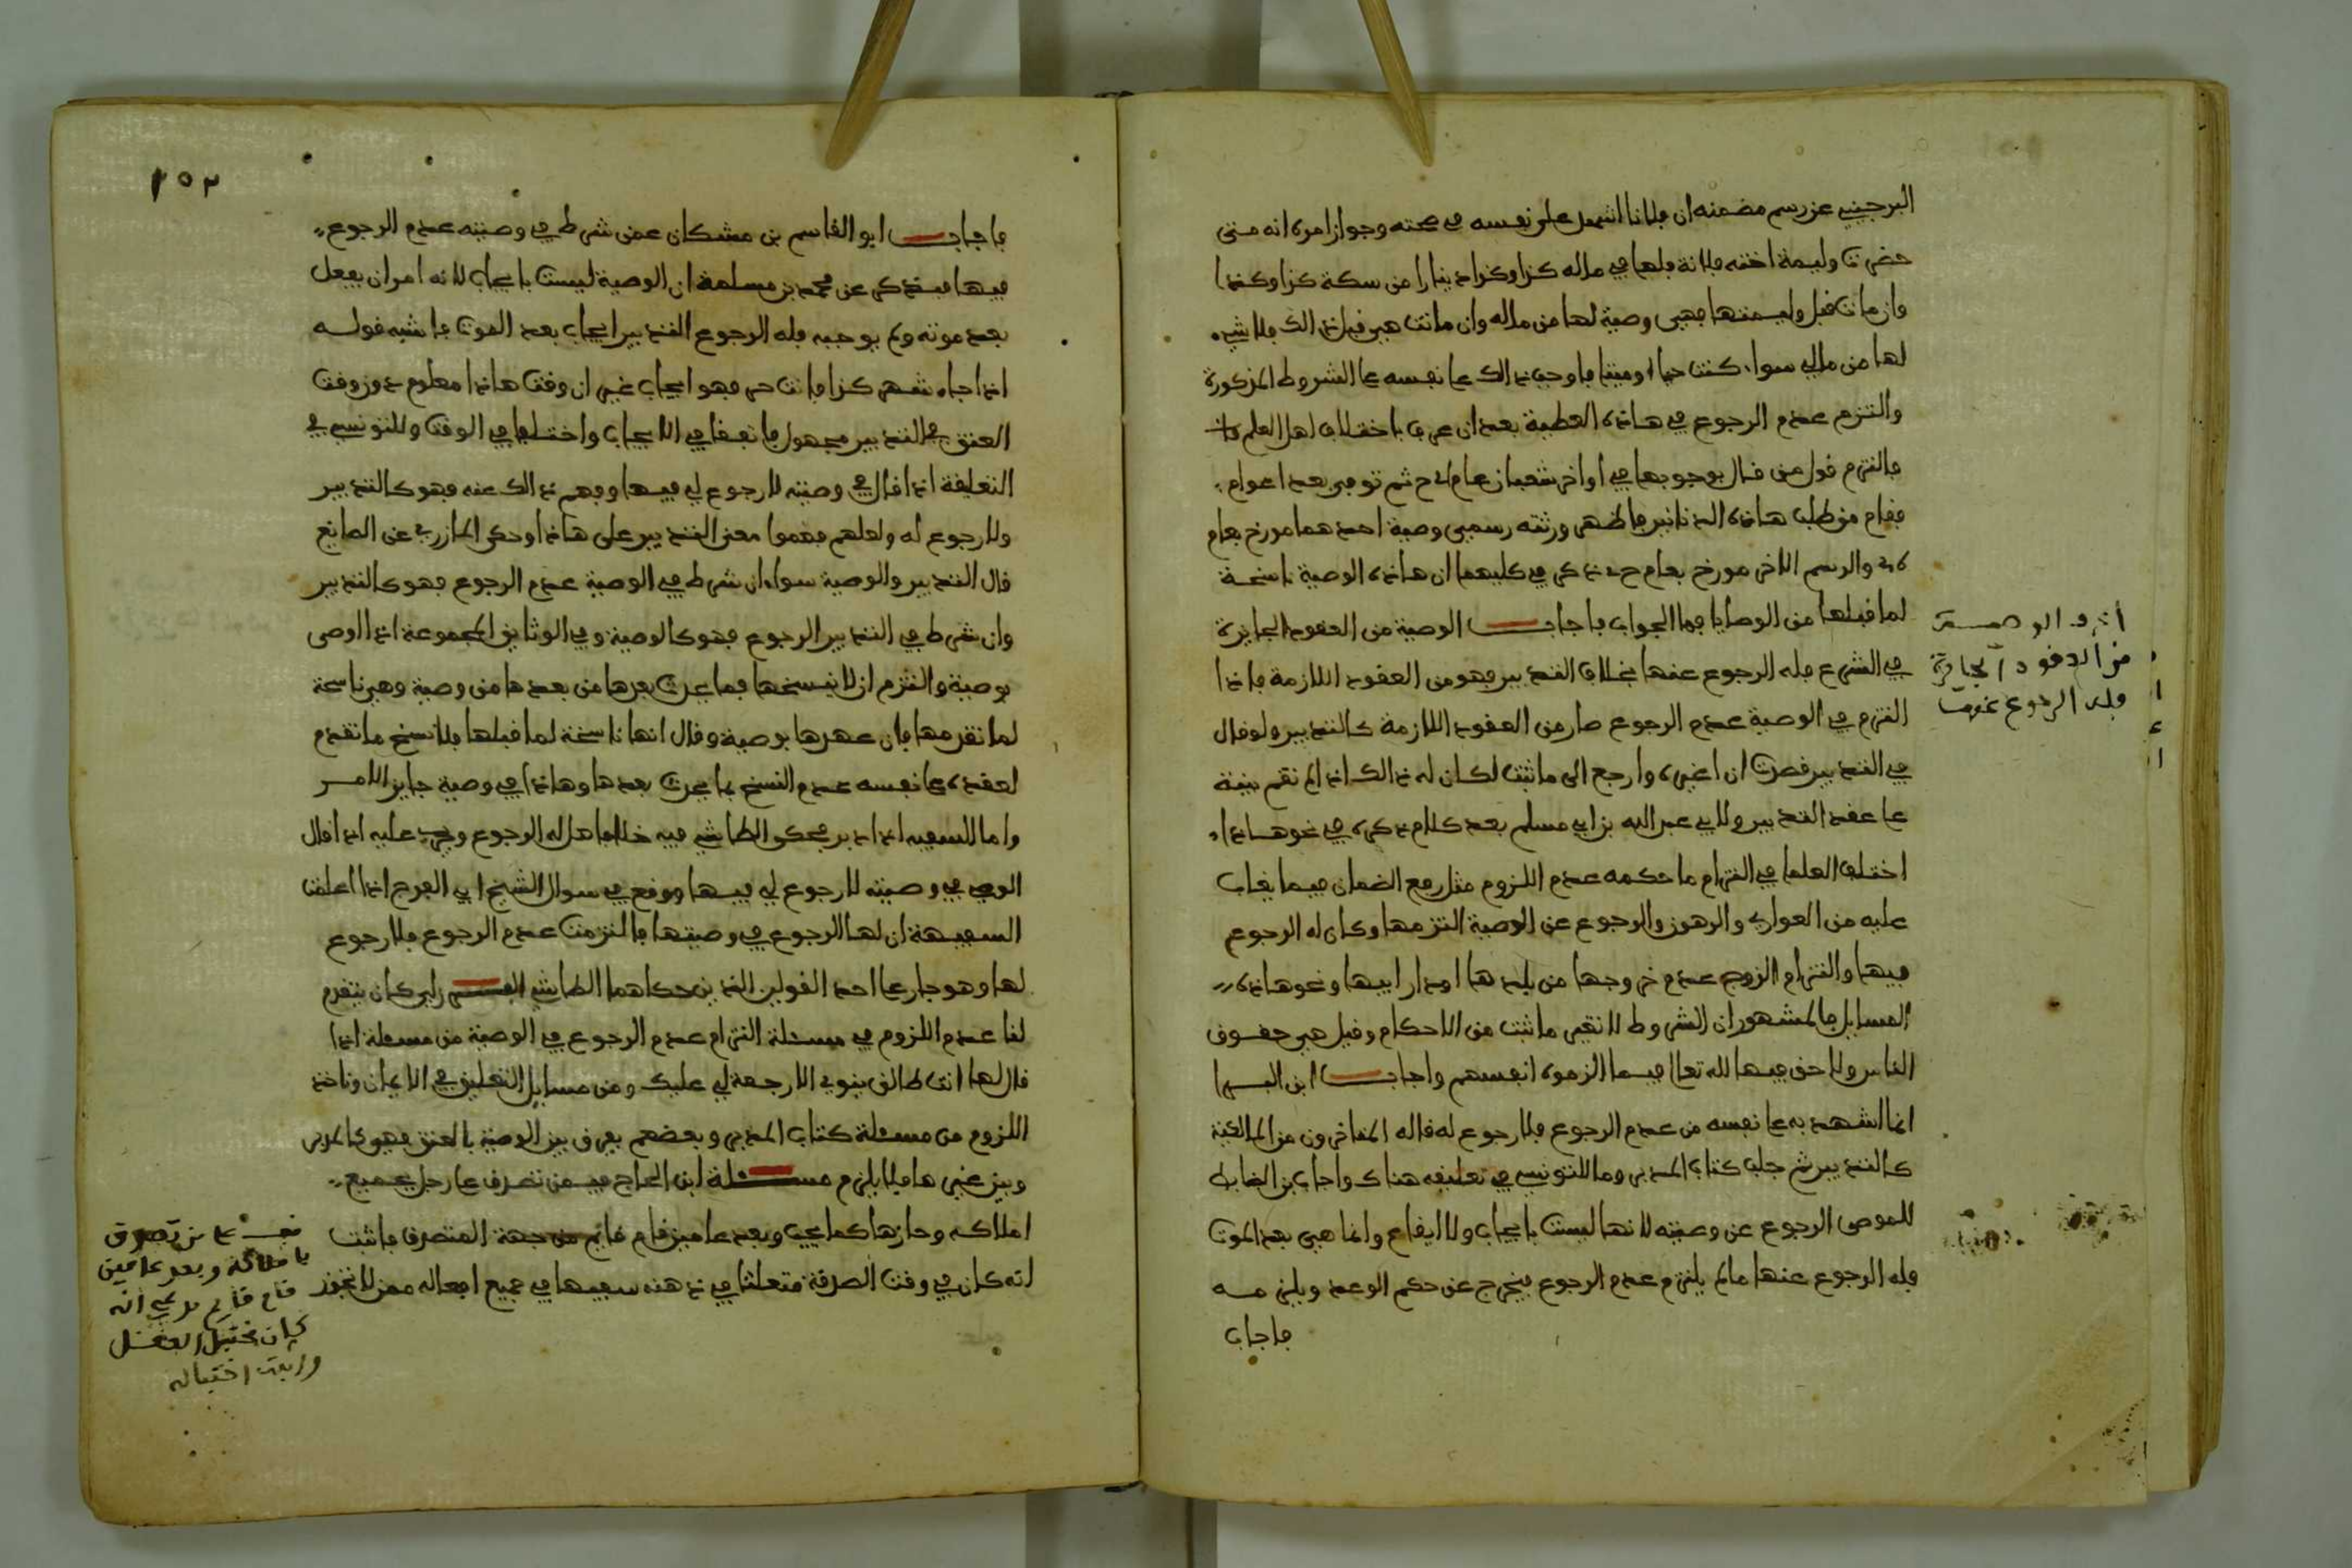 البرجيني عن رسم مضمنه ان فلانا اشهد على نفسه في صحته وجواز امره انه متى
حضرت وليمة اخته فلانة فلها في ماله كذا وكذا دينارا من سكة كذا وكذا
وان مات قبل وليمتها فهي وصية لها من ماله وان ماتت هي قبل ذالك فلا شيء
لها من مالي سواء كنت حيا او ميتا فاوجب ذالك على نفسه على الشروط المذكورة
والتزم عدم الرجوع في هاذه العطية بعد ان عرف باختلاف اهل العلم
فالتزم قول من قال بوجوبها في اواخر شعبان عام ثم توفي بعد اعوام
فقام من طلب هاذه الدنانير فاظهر ورثته رسمي وصية احدهما مورخ بعام
والرسم الاخر مورخ بعام ذكر في كليهما ان هاذه الوصية ناسخة
لما قبلها من الوصايا فما الجواب فاجاب الوصية من العقود الجايزة
في الشرع فله الرجوع عنها بخلاف التدبير فهو من العقود اللازمة فاذا
التزم في الوصية عدم الرجوع صار من العقود اللازمة كالتدبير ولو قال
في التدبير قصدت ان اغيره وارجع الى ما ثبت لكان له ذالك اذا لم تقم بينة
على عقد التدبير ولابي عبد الله بن ابي مسلم بعد كلام ذكره في نحو هاذا
اختلف العلما في التزام ما حكمه عدم اللزوم مثل رفع الضمان فيما يغاب
عليه من العواري والرهون والرجوع عن الوصية التزمها وكان له الرجوع
فيها والتزام الزوج عدم خروجها من بلدها او دار ابيها ونحو هاذه
المسايل فالمشهور ان الشروط لا تغير ما ثبت من الاحكام وقيل هي حقوق
الناس ولا حق فيها لله تعالى فيما الزموه انفسهم واجاب ابن البرا
انما اشهد به على نفسه من عدم الرجوع فلا رجوع له قاله المتاخرون من المالكية
كالتدبير ثم جلب كتاب المدبر وما للتونسي في تعليقه هناك واجاب بن الضابط
للموصي الرجوع عن وصيته لانها ليست بايجاب ولا ايقاع وانما هي بعد الموت
فله الرجوع عنها ما لم يلتزم عدم الرجوع فيخرج عن حكم الوعد ويلزمه
فاجاب
من العقود الجايزة
فله الرجوع عنها
١٥٢
فاجاب ابو القاسم بن مشكان عمن شرط في وصيته عدم الرجوع
فيها فذكر عن محمد بن مسلمة ان الوصية ليست بايجاب لانه امر ان يفعل
بعد موته ولم يوجبه فله الرجوع التدبير ايجاب بعد الموت فاشبه قوله
اذا جاء شهر كذا فانت حر فهو ايجاب غير ان وقت هاذا معلوم ووقت
العتق في التدبير مجهول فاتفقا في الايجاب واختلفا في الوقت وللتونسي في
التعليقة اذا قال في وصيته لا رجوع لي فيها وفهم ذالك عنه فهو كالتدبير
ولا رجوع له ولعلهم فهموا معنى التدبير على هاذا وحكى المازري عن الصايغ
قال التدبير والوصية سواء ان شرط في الوصية عدم الرجوع فهو كالتدبير
وان شرط في التدبير الرجوع فهو كالوصية وفي الوثايق المجموعة اذا اوصى
بوصية والتزم ان لا ينسخها بما يحدث بعدها من بعدها من وصية وهي ناسخة
لما تقدمها فان عهدها بوصية وقال انها ناسخة لما قبلها فلا تنسخ ما تقدم
لعقده على نفسه عدم النسخ بما يحدث بعدها وهاذا في وصية جايز الامر
واما السفيه اذا دبر فحكى الطابثي فيه خلافا هل له الرجوع ويجري عليه اذا قال
الوصي في وصيته لا رجوع لي فيها ووقع في سوال الشيخ ابي الفرج اذا اعلمت
السفيهة ان لها الرجوع في وصيتها فالتزمت عدم الرجوع فلا رجوع
لها وهو جار على احد القولين الذين حكاهما الطابثي كان يتقدم
لنا عدم اللزوم في مسئلة التزام عدم الرجوع في الوصية من مسئلة اذا
قال لها انت طالق ينوي لا رجعة لي عليك ومن مسايل التعليق في الايمان وناخذ
اللزوم من مسئلة كتاب المدبر وبعضهم يفرق بين الوصية بالعتق فهو كالمدبر
وبين غيرها فلا يلزم مسئلة ابن الحاج فيمن تصرف على رجل بجميع
املاكه وحازها كما يجب وبعد عامين قام قايم من جهة المتصرف فاثبت
انه كان في وقت الصدقة مختلا في ذهنه سفيها في جميع افعاله ممن لا تجوز
من تصدق
باملاكه وبعد عامين
قام قايم يدعي انه
كان مختبل العقل
واثبت اختباله